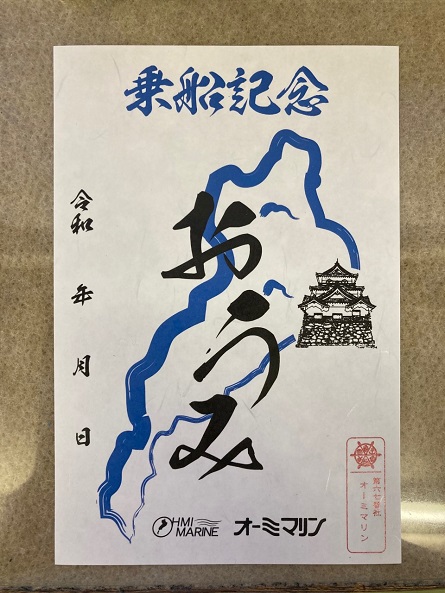 乗船記念
おうみ
令和 年 月 日
OHMI MARINE
オーミマリン
オーミマリン